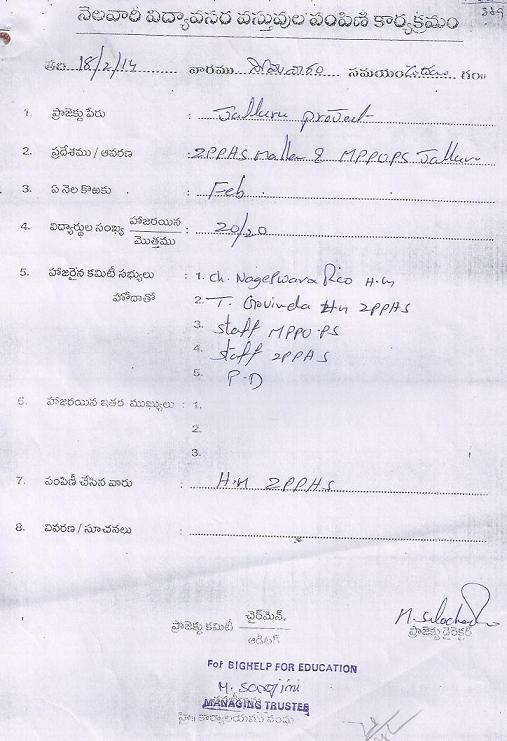 339
నెలవారి విద్యావసర వస్తువుల పంపిణి కార్యక్రమం
తేది 18/2/14 వారము సోమవారం సమయం ఉదయం గం॥
1. ప్రాజెక్టు పేరు : Jalluru project
2. ప్రదేశము / ఆవరణ : ZPPHS Mallam & MPPUPS Jallur
3. ఏ నెల కొఱకు : Feb
4. విద్యార్థుల సంఖ్య హాజరయిన / మొత్తము : 20/20
5. హాజరైన కమిటీ సభ్యులు : 1. Ch. Nageswara Rao H.M
హోదాతో 2. T. Govinda HM ZPPHS
3. Staff MPPU.PS
4. Staff ZPPHS
5. P.D
6. హాజరయిన ఇతర ముఖ్యులు : 1.
2.
3.
7. పంపిణీ చేసిన వారు : H.M ZPPHS
8. వివరణ / సూచనలు :
ప్రాజెక్టు కమిటీ చైర్‌మేన్. / ఆడిటర్
ప్రాజెక్టు డైరెక్టర్
For BIGHELP FOR EDUCATION
M. Sarojini
MANAGING TRUSTEE